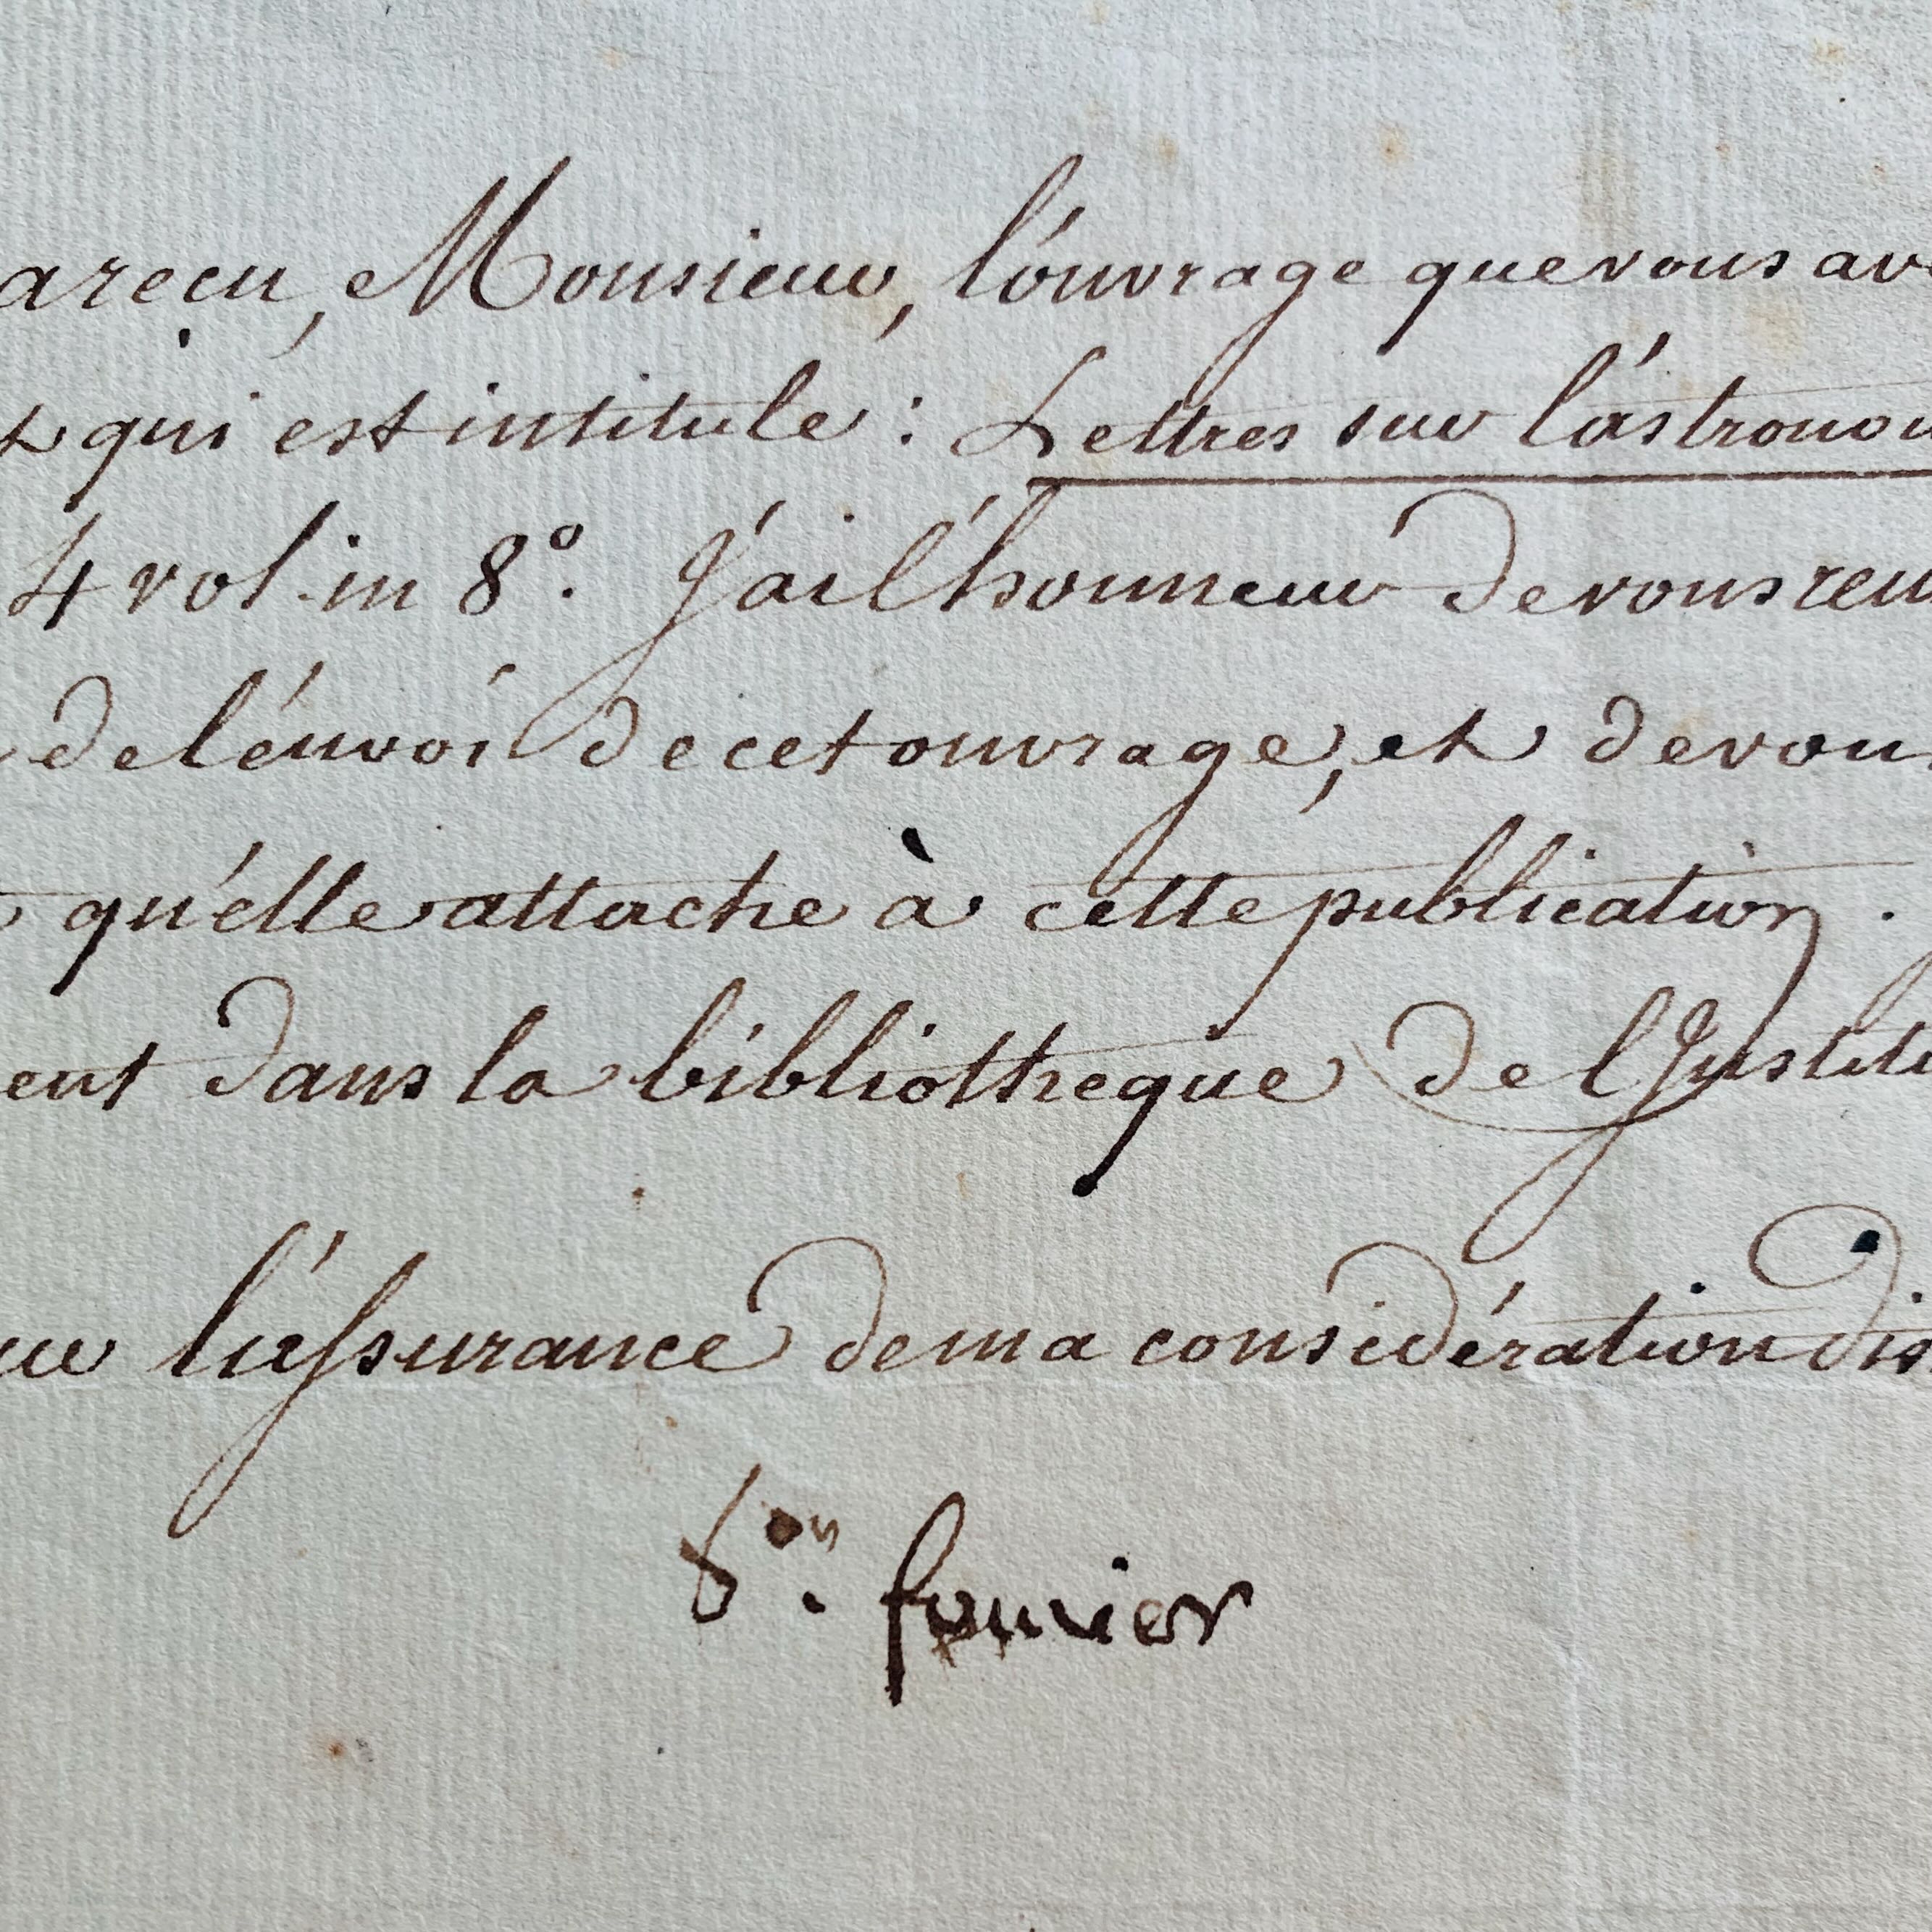 a reçu, Monsieur, l'ouvrage que vous av
qui est intitulé : Lettres sur l'astronom
4 vol. in 8°. J'ai l'honneur de vous rem
de l'envoi de cet ouvrage, et de vous
qu'elle attache à cette publication.
ent dans la bibliotheque de l'Institu
l'assurance de ma considération dis
Bon. fourier